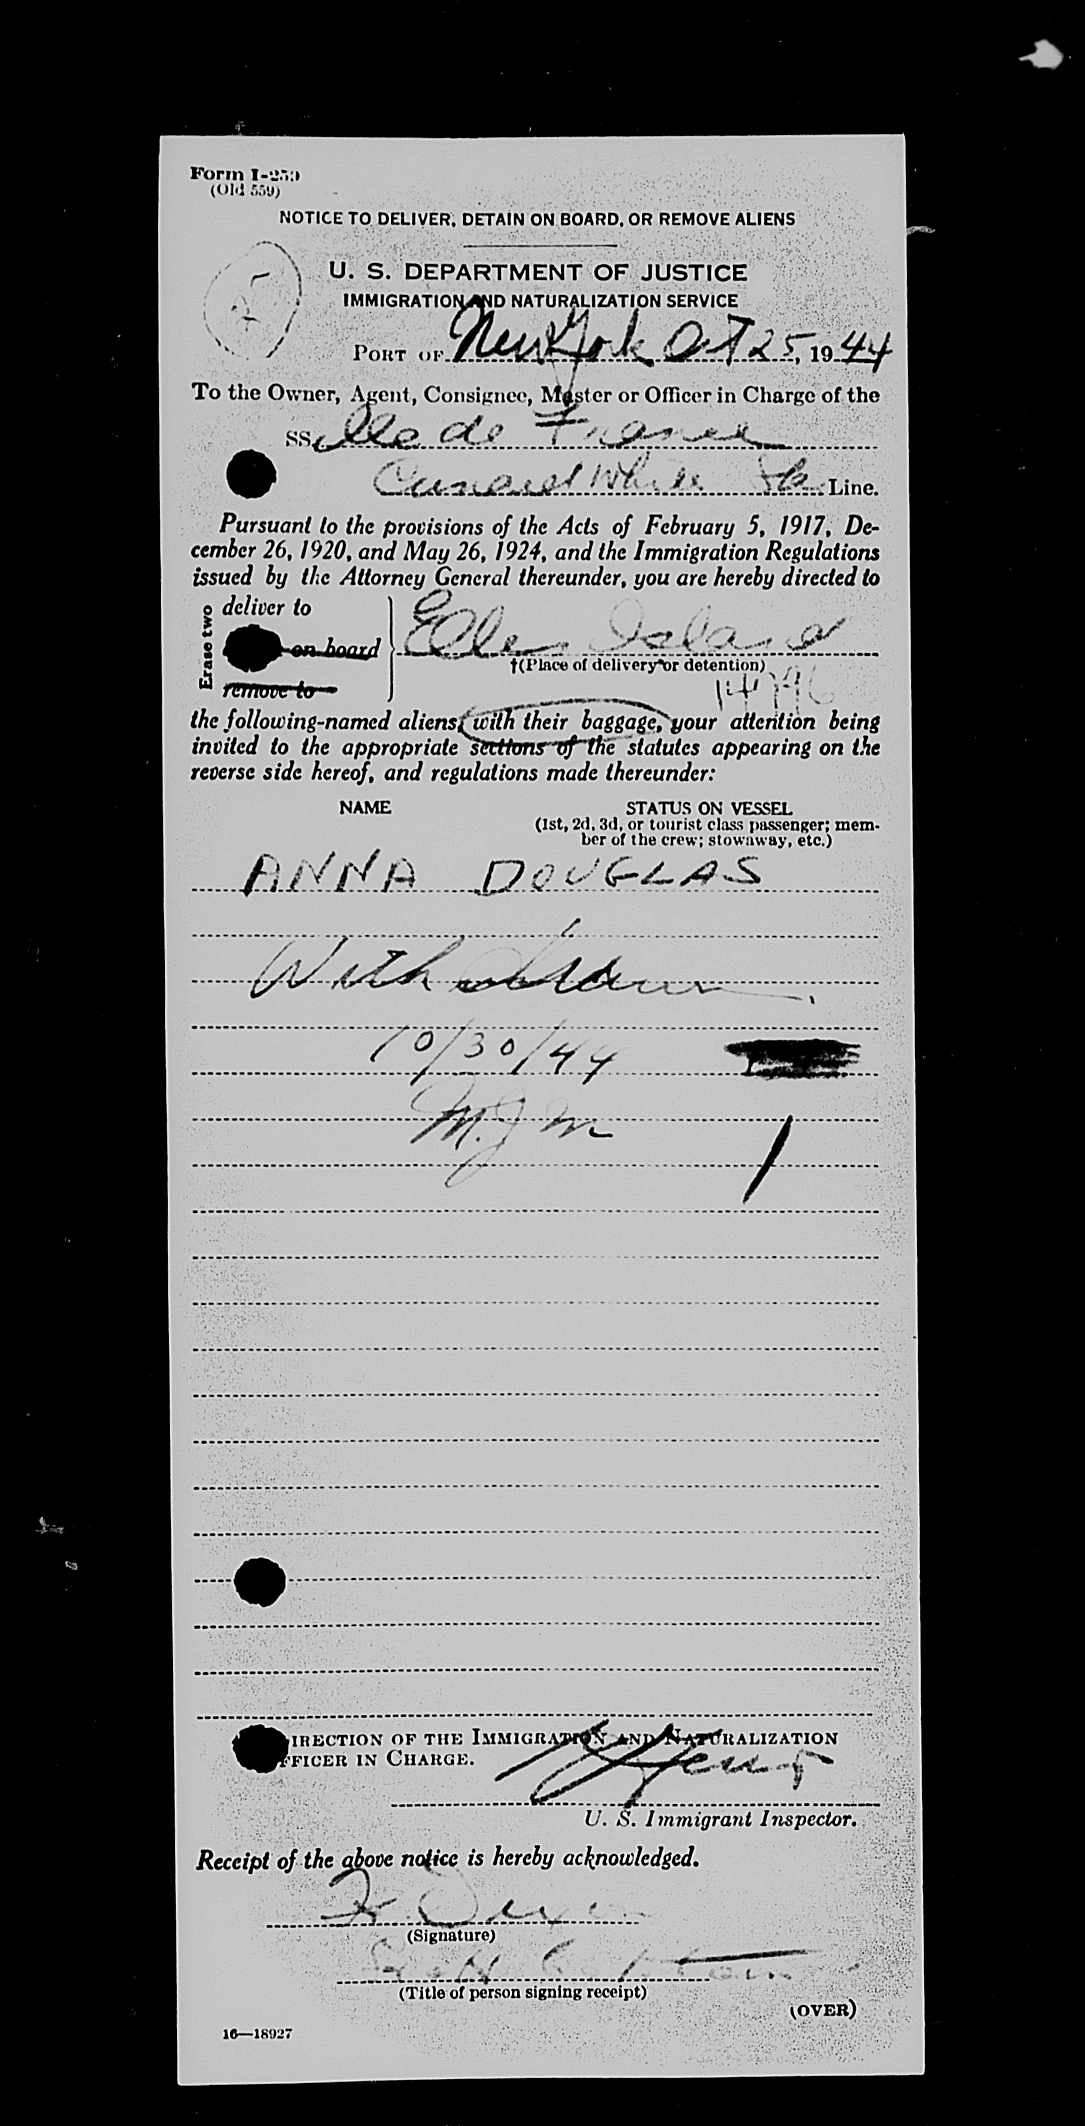 Form I-259
(Old 559)
NOTICE TO DELIVER, DETAIN ON BOARD, OR REMOVE ALIENS
U. S. DEPARTMENT OF JUSTICE
IMMIGRATION AND NATURALIZATION SERVICE
PORT OF New York Oct 25, 1944
To the Owner, Agent, Consignee, Master or Officer in Charge of the
SS. Ile de France
Cunard White Star Line.
Pursuant to the provisions of the Acts of February 5, 1917, De-
cember 26, 1920, and May 26, 1924, and the Immigration Regulations
issued by the Attorney General thereunder, you are hereby directed to
Erase two
deliver to
on board
remove to
Ellis Island
†(Place of delivery or detention)
14796
the following-named aliens, with their baggage, your attention being
invited to the appropriate sections of the statutes appearing on the
reverse side hereof, and regulations made thereunder:
NAME STATUS ON VESSEL
(1st, 2d, 3d, or tourist class passenger; mem-
ber of the crew; stowaway, etc.)
ANNA DOUGLAS
Withdrawn
10/30/44
M.J.M
1
IRECTION OF THE IMMIGRATION AND NATURALIZATION
FFICER IN CHARGE.
U. S. Immigrant Inspector.
Receipt of the above notice is hereby acknowledged.
(Signature)
(Title of person signing receipt)
(OVER)
16—18927